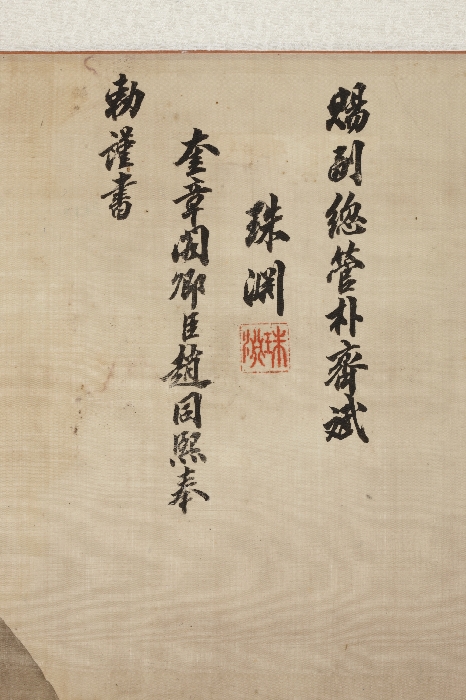 賜副總管朴齊斌
珠淵
珠淵
奎章閣卿臣趙同熙奉
勅謹書